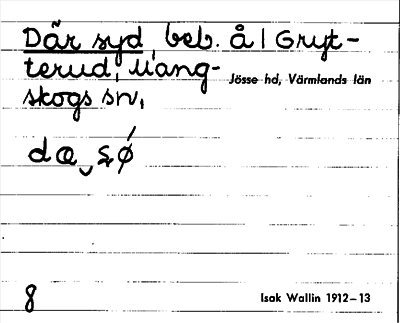 Där syd, beb. å | Gryt-
terud, Mang-
Jösse hd, Värmlands län
skogs sn,
8
Isak Wallin 1912–13